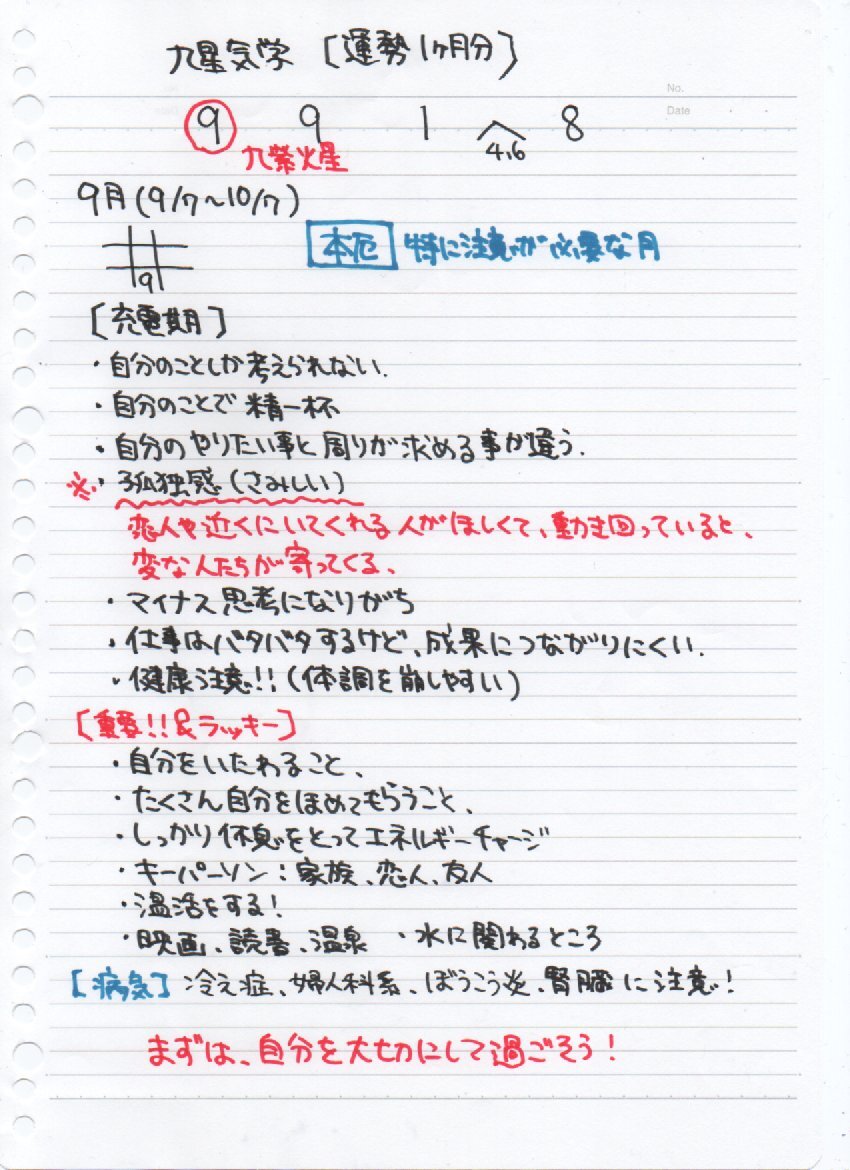 九星気学 [運勢1ヶ月分]
No.
Date
9 9 1 8
4.6
九紫火星
9月(9/7〜10/7)
本厄 特に注意が必要な月
9
[充電期]
・自分のことしか考えられない.
・自分のことで精一杯
・自分のやりたい事と周りが求める事が違う.
※・孤独感(さみしい)
恋人や近くにいてくれる人がほしくて、動き回っていると、
変な人たちが寄ってくる、
・マイナス思考になりがち
・仕事はバタバタするけど、成果につながりにくい.
・健康注意!!(体調を崩しやすい)
[重要!!&ラッキー]
・自分をいたわること、
・たくさん自分をほめてもらうこと、
・しっかり休息をとってエネルギーチャージ
・キーパーソン:家族、恋人、友人
・温活をする!
・映画、読書、温泉 ・水に関わるところ
[病気] 冷え症、婦人科系、ぼうこう炎、腎臓に注意!
まずは、自分を大切にして過ごそう!